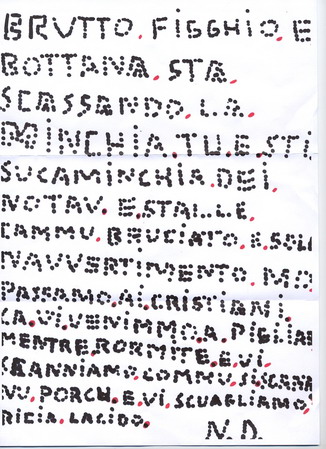 BRUTTO. FIGGHIO. E
BOTTANA. STA.
SCASSANDO. LA.
MINCHIA. TU.E. STI
SUCAMINCHIA. DEI.
NOTAV. E. STALLE.
CAMMU. BRUCIATO. E. SOLU
NAVVERTIMENTO. MO
PASSAMO. AI. CRISTIANI.
CA. VI. VENIMMO. A. PIGLIA
MENTRE. RORMITE. E. VI.
COMMU. SI. SCANA
NU. PORCU. E. VI. SCUAGLIAMO
LACIDO.
N.D.